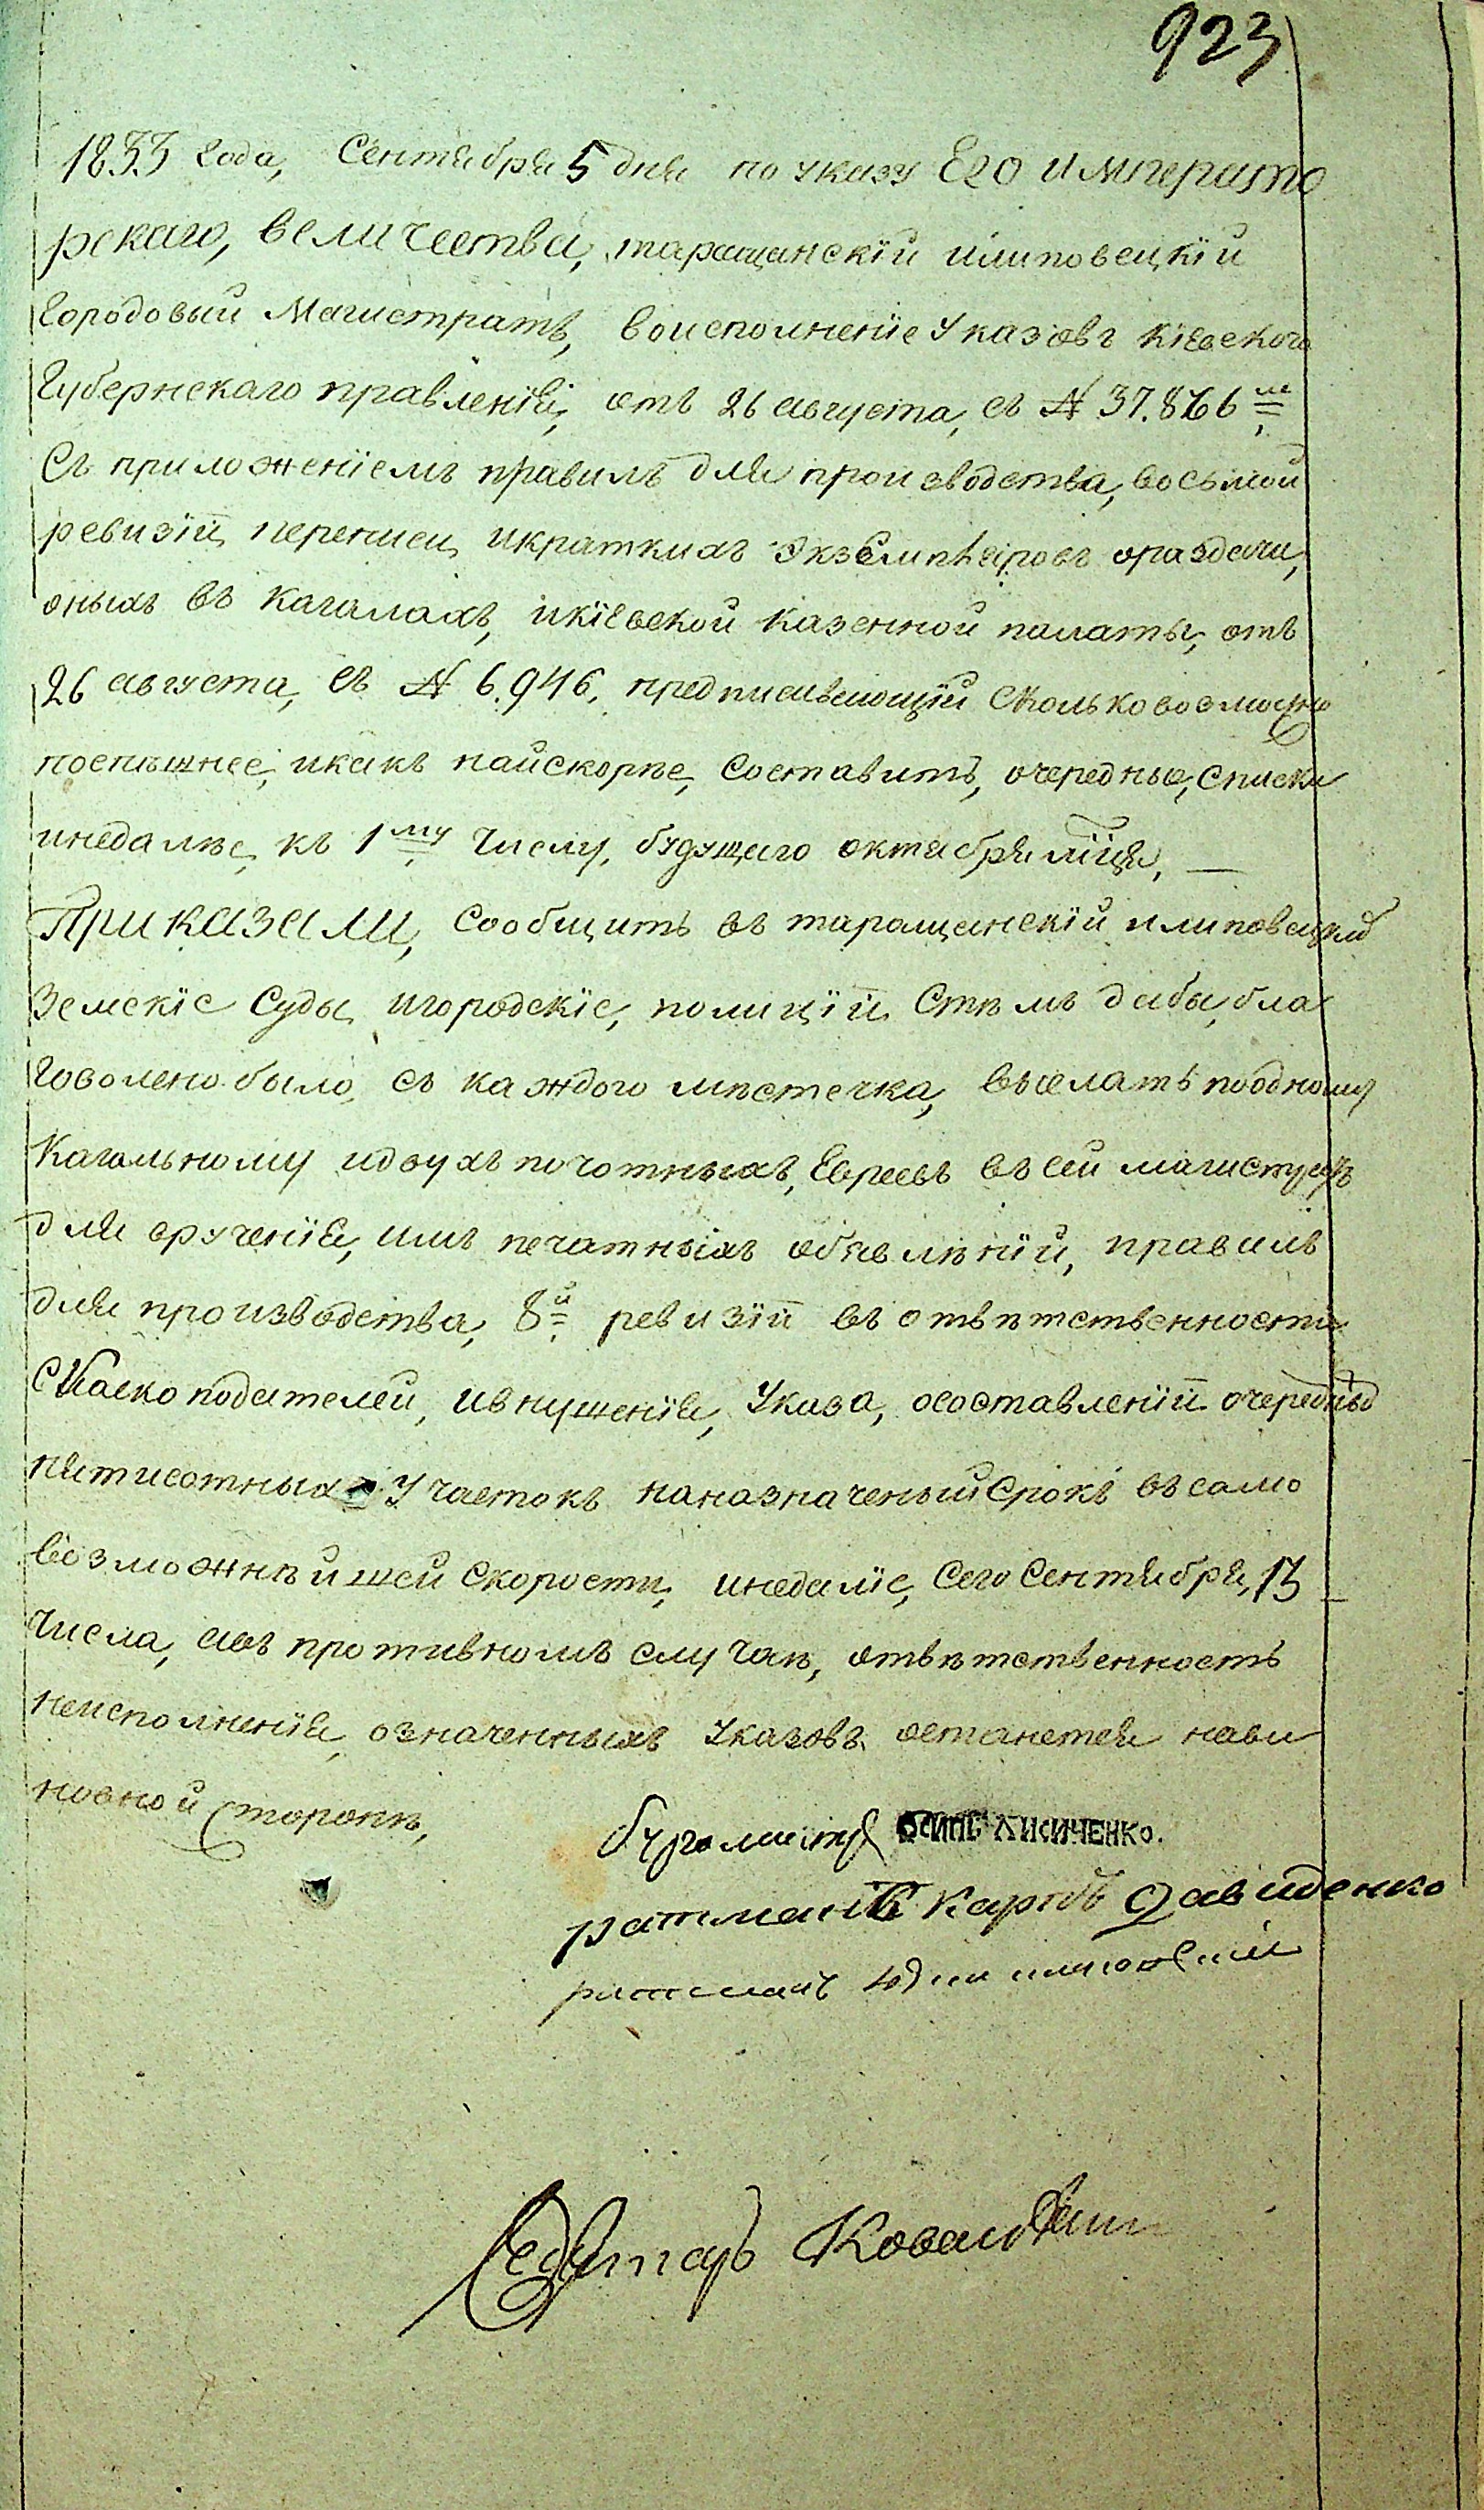 923
1833 года, Сентября 5 дня по указу Его императо
рскаго, величества, таращанскїй илиповецкїй
городовый Магистратъ, воисполненїе Указовъ Кїевского
Губернскаго правленїя, отъ 26 августа, съ № 37.866 м
Съ приложенїемъ правилъ для производства, восьмой
ревизїи, переписи, икраткихъ Экземпляровъ ораздачи,
оныхъ въ Кагалахъ, икїевской Казенной палаты, отъ
26 августа, съ № 6.946. предписывающїй Скольковозможно
поспѣшнее, икакъ найскорѣе, Составить, очередные, Списки
инедалѣе, къ 1му Числу, будущего октября мїця, —
Приказали, Сообщить въ таращанскїй илиповецкїй
Земскїе Суды, игородскїе, полицїи, Стѣмъ дабы, бла
говолено было, съ каждого мѣстечка, выслать поодному
Кагальному идвухъ почотныхъ, Евреевъ въ сей магистратъ
для вручения, имъ печатныхъ объявлѣнїй, правилъ
для производства, 8й ревизїи въ отвѣтственности
Сказкоподателей, ивнушенїя, Указа, осоставленїи очередныхъ
пятисотныхъ Участокъ наназначеный Срокъ въ само
возможнѣйшей Скорости, инедалїе, Сего Сентября, 13
Числа, авъ противномъ случаѣ, отвѣтственность
неисполненїя, означенныхъ Указовъ останется нави
новной Сторонѣ,
бургомистръ ОСИПЪ ЛИСИЧЕНКО.
ратманъ Карпъ Давиденко
ратманъ